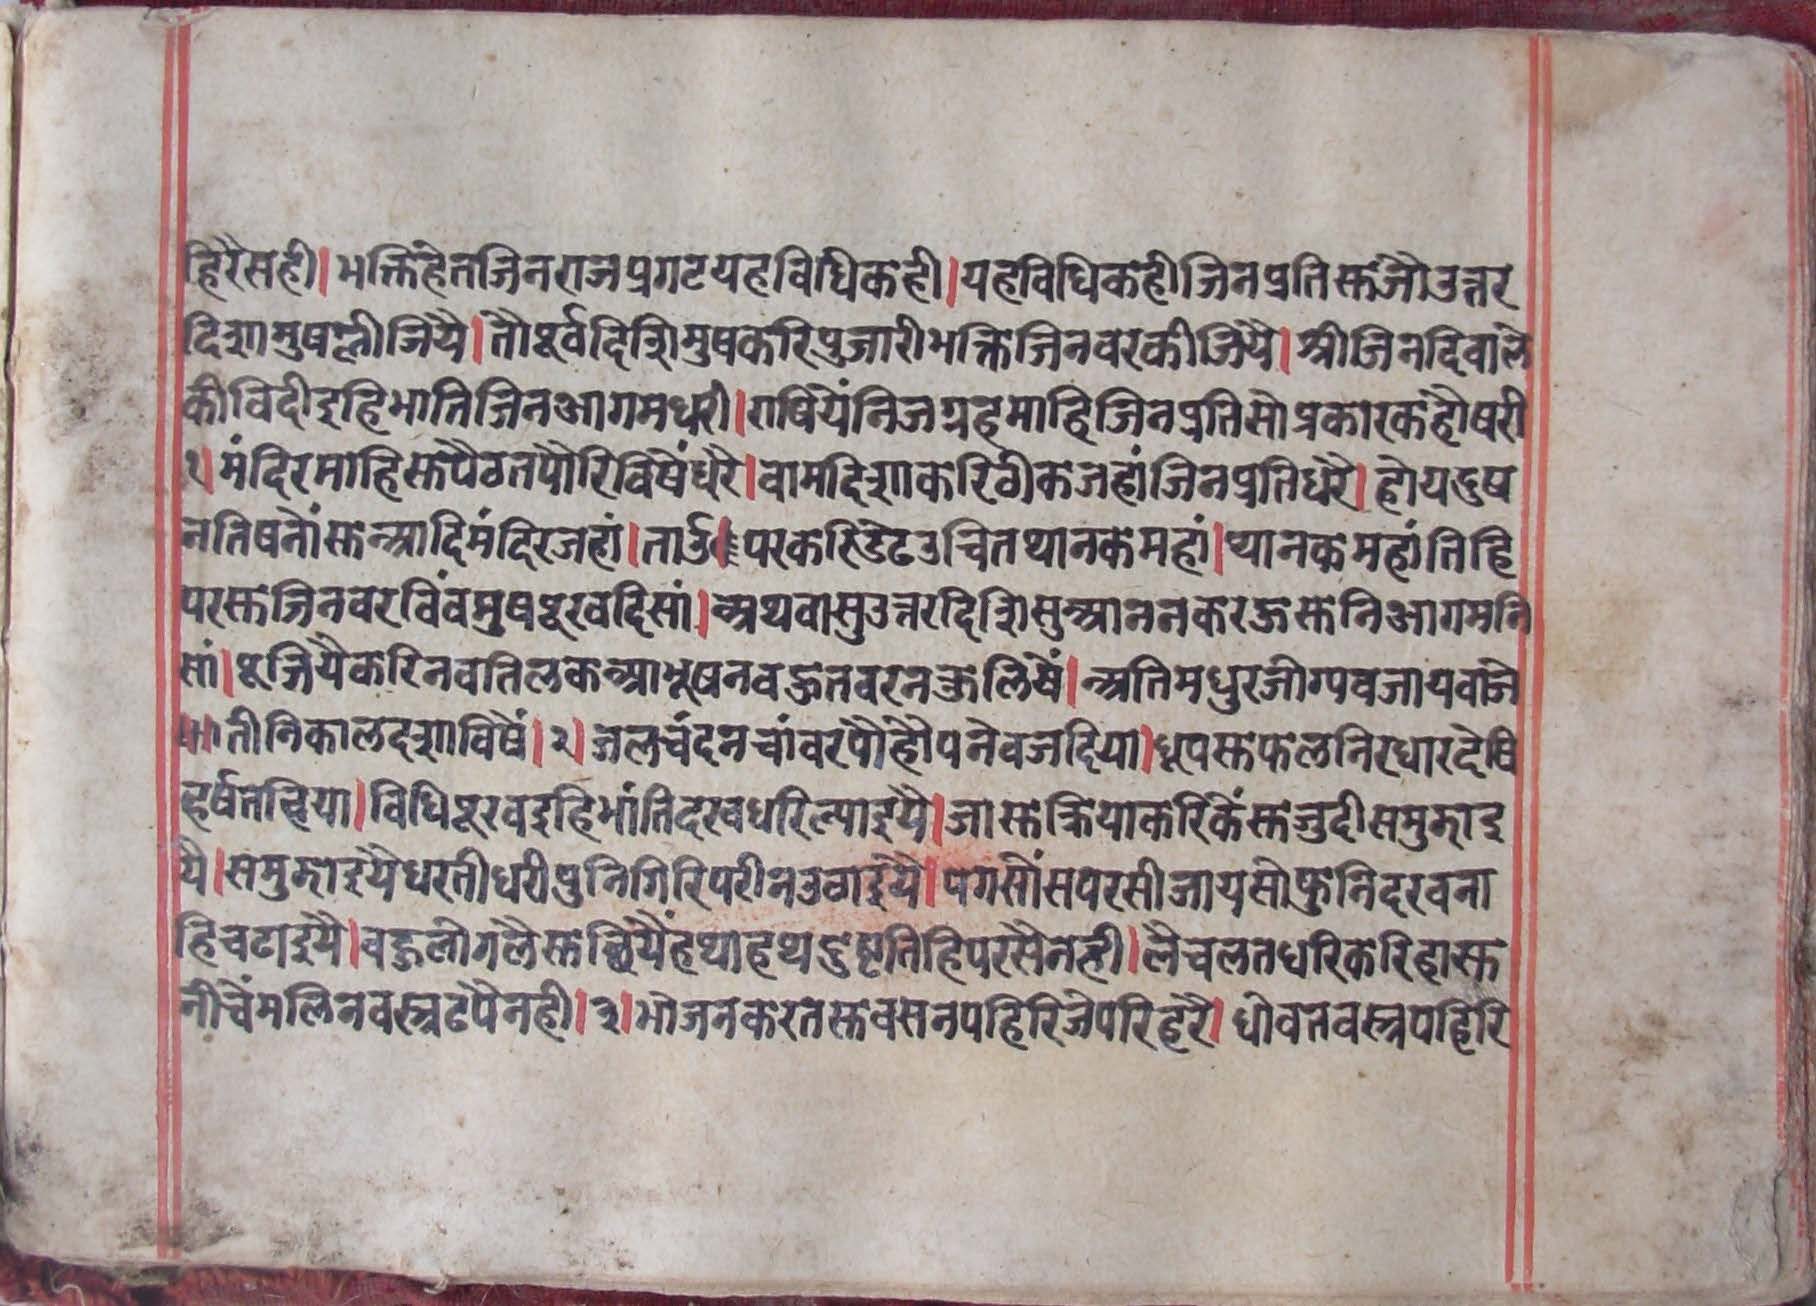 हिरैसही। भक्तिहेतजिनराजप्रगटयहविधिकही। यहविधिकहीजिनप्रतिसुजौउत्तर
दिशामुषलीजियै। तौपूर्वदिशिमुषकरिपुजारीभक्तिजिनवरकीजियै। श्रीजिनदिवाले
कीविदीइहिभातिजिनआगमधरी। राषियेंनिजग्रहमाहिजिनप्रतिसोप्रकारकहौषरी
१। मंदिरमाहिसुपैठतपौरिविषैंधरै। वामदिशाकरिठीकजहांजिनप्रतिधरै। होयदुष
नतिषनौंसुन्आदिमंदिरजहां। परकरिउचितथानकमहां। थानकमहांतिहि
परसुजिनवरविंवमुषपूरवदिसां। अथवासुउत्तरदिशिसुआननकरऊसुनिआगमनि
सां। पूजियैकरिनवतिलकआभूषनवऊतवरनऊलिषैं। अतिमधुरजोग्यवजायवाजे
तीनिकालदशाविषैं। २। जलचंदनचांवरपौहौपनेवजदिया। धूपसुफलनिरधारदेषि
हर्षतहिया। विधिपूरवइहिभांतिदरवधरिल्याइयै। जासुक्रियाकरिकैंसुजुदीसमुझाइ
यै। समुझाइयैधरतीधरीपुनिगिरिपरीनउठाइयै। पगसौंसपरसीजायसोफुनिदरवना
हिचढाइयै। वऊलोगलैसुछियैंहथाहथदुष्टतिहिपरसैनही। लैचलतधरिकरिहासु
नीचैंमलिनवस्त्रढपैनही। ३। भोजनकरतसुवसनपहिरिजेपरिहरै। धोवतवस्त्रपहिरि